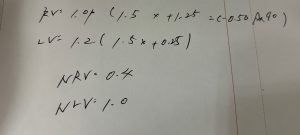 RV= 1.0* (1.5 x +1.25 =(-0.50 Ax90
LV= 1.2 (1.5x+0.25)
NRV= 0.4
NLV= 1.0